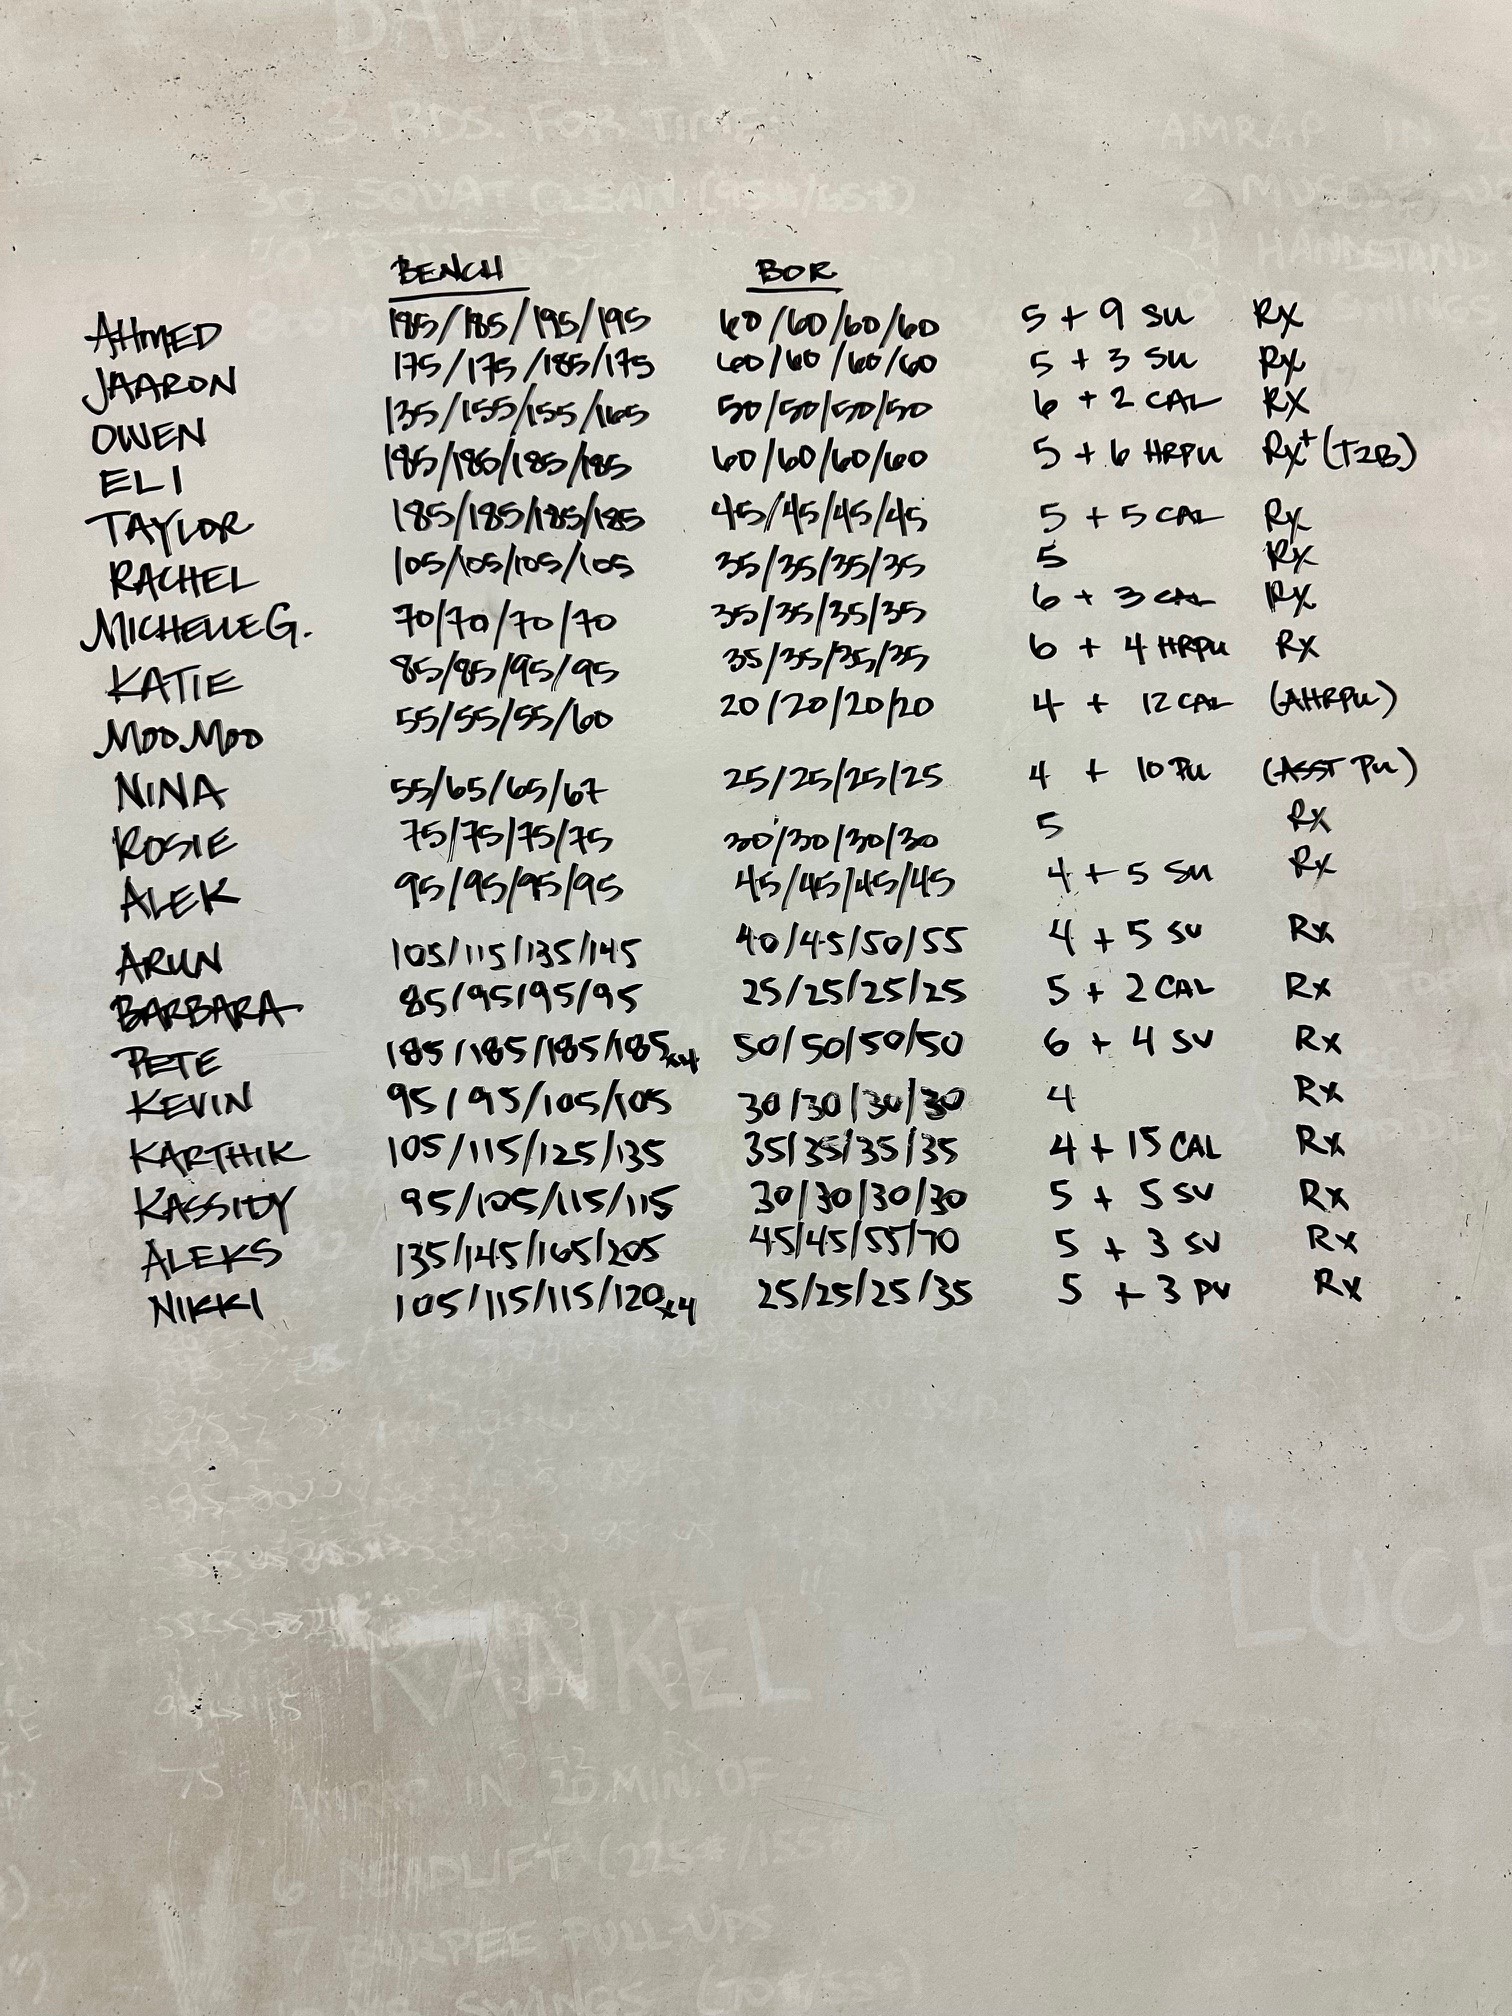 DAGGER
3 RDS. FOR TIME
AMRAP IN
30 SQUAT CLEAN (95#/65#)
2 MUSCLE
4 HANDSTAND
BENCH BOR
AHMED 185/185/195/195 60/60/60/60 5 + 9 SU RX
JAARON 175/175/185/175 60/60/60/60 5 + 3 SU RX
OWEN 135/155/155/165 50/50/50/50 6 + 2 CAL RX
ELI 185/185/185/185 60/60/60/60 5 + 6 HRPU RX+ (T2B)
TAYLOR 185/185/185/185 45/45/45/45 5 + 5 CAL RX
RACHEL 105/105/105/105 35/35/35/35 5 RX
MICHELLE G. 70/70/70/70 35/35/35/35 6 + 3 CAL RX
KATIE 85/85/95/95 35/35/35/35 6 + 4 HRPU RX
MOOMOO 55/55/55/60 20/20/20/20 4 + 12 CAL (AHRPU)
NINA 55/65/65/67 25/25/25/25 4 + 10 PU (ASST PU)
ROSIE 75/75/75/75 30/30/30/30 5 RX
ALEK 95/95/95/95 45/45/45/45 4 + 5 SU RX
ARUN 105/115/135/145 40/45/50/55 4 + 5 SU RX
BARBARA 85/95/95/95 25/25/25/25 5 + 2 CAL RX
PETE 185/185/185/185x4 50/50/50/50 6 + 4 SU RX
KEVIN 95/95/105/105 30/30/30/30 4 RX
KARTHIK 105/115/125/135 35/35/35/35 4 + 15 CAL RX
KASSIDY 95/105/115/115 30/30/30/30 5 + 5 SU RX
ALEKS 135/145/165/205 45/45/55/70 5 + 3 SU RX
NIKKI 105/115/115/120x4 25/25/25/35 5 + 3 PU RX
"RANKEL"
"LUCE
75
AMRAP IN 20 MIN. OF:
6 DEADLIFT (225#/155#)
7 BURPEE PULL-UPS
SWINGS (70#/53#)